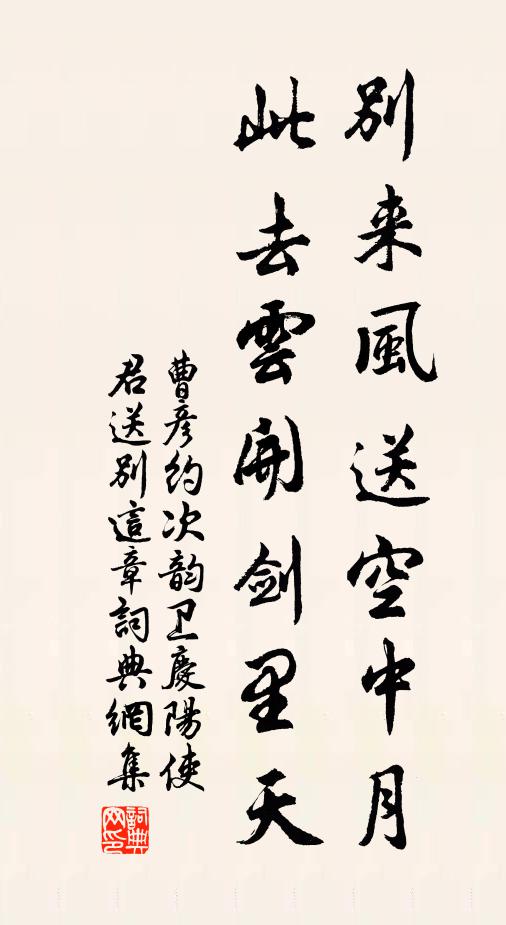 別来風送空中月
此去雲開剑里天
曹彦约次韵卫慶陽使
君送别這章詞典網集
詞典网印